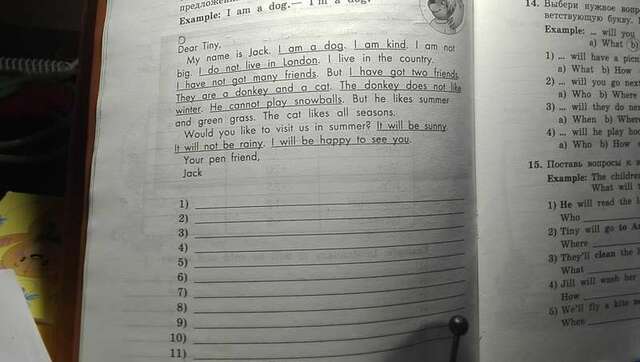 предложен
Example: I am a dog. — I'm a dog.
Dear Tiny,
My name is Jack. I am a dog. I am kind. I am not
big. I do not live in London. I live in the country.
I have not got many friends. But I have got two friends.
They are a donkey and a cat. The donkey does not like
winter. He cannot play snowballs. But he likes summer
and green grass. The cat likes all seasons.
Would you like to visit us in summer? It will be sunny.
It will not be rainy. I will be happy to see you.
Your pen friend,
Jack
1)
2)
3)
4)
5)
6)
7)
8)
9)
10)
11)
14. Выбери нужное вопр
ветствующую букву.
Example: ... will you
a) What b)
1) ... will have a picn
a) What b) How
2) ... will you go next
a) Who b) Where
3) ... will they do nex
a) When b) Where
4) ... will he play hom
a) Who b) How
15. Поставь вопросы к в
Example: The children
What will
1) He will read the l
Who
2) Tiny will go to A
Where
3) They'll clean the l
What
4) Jill will wash her
How
5) We'll fly a kite
When